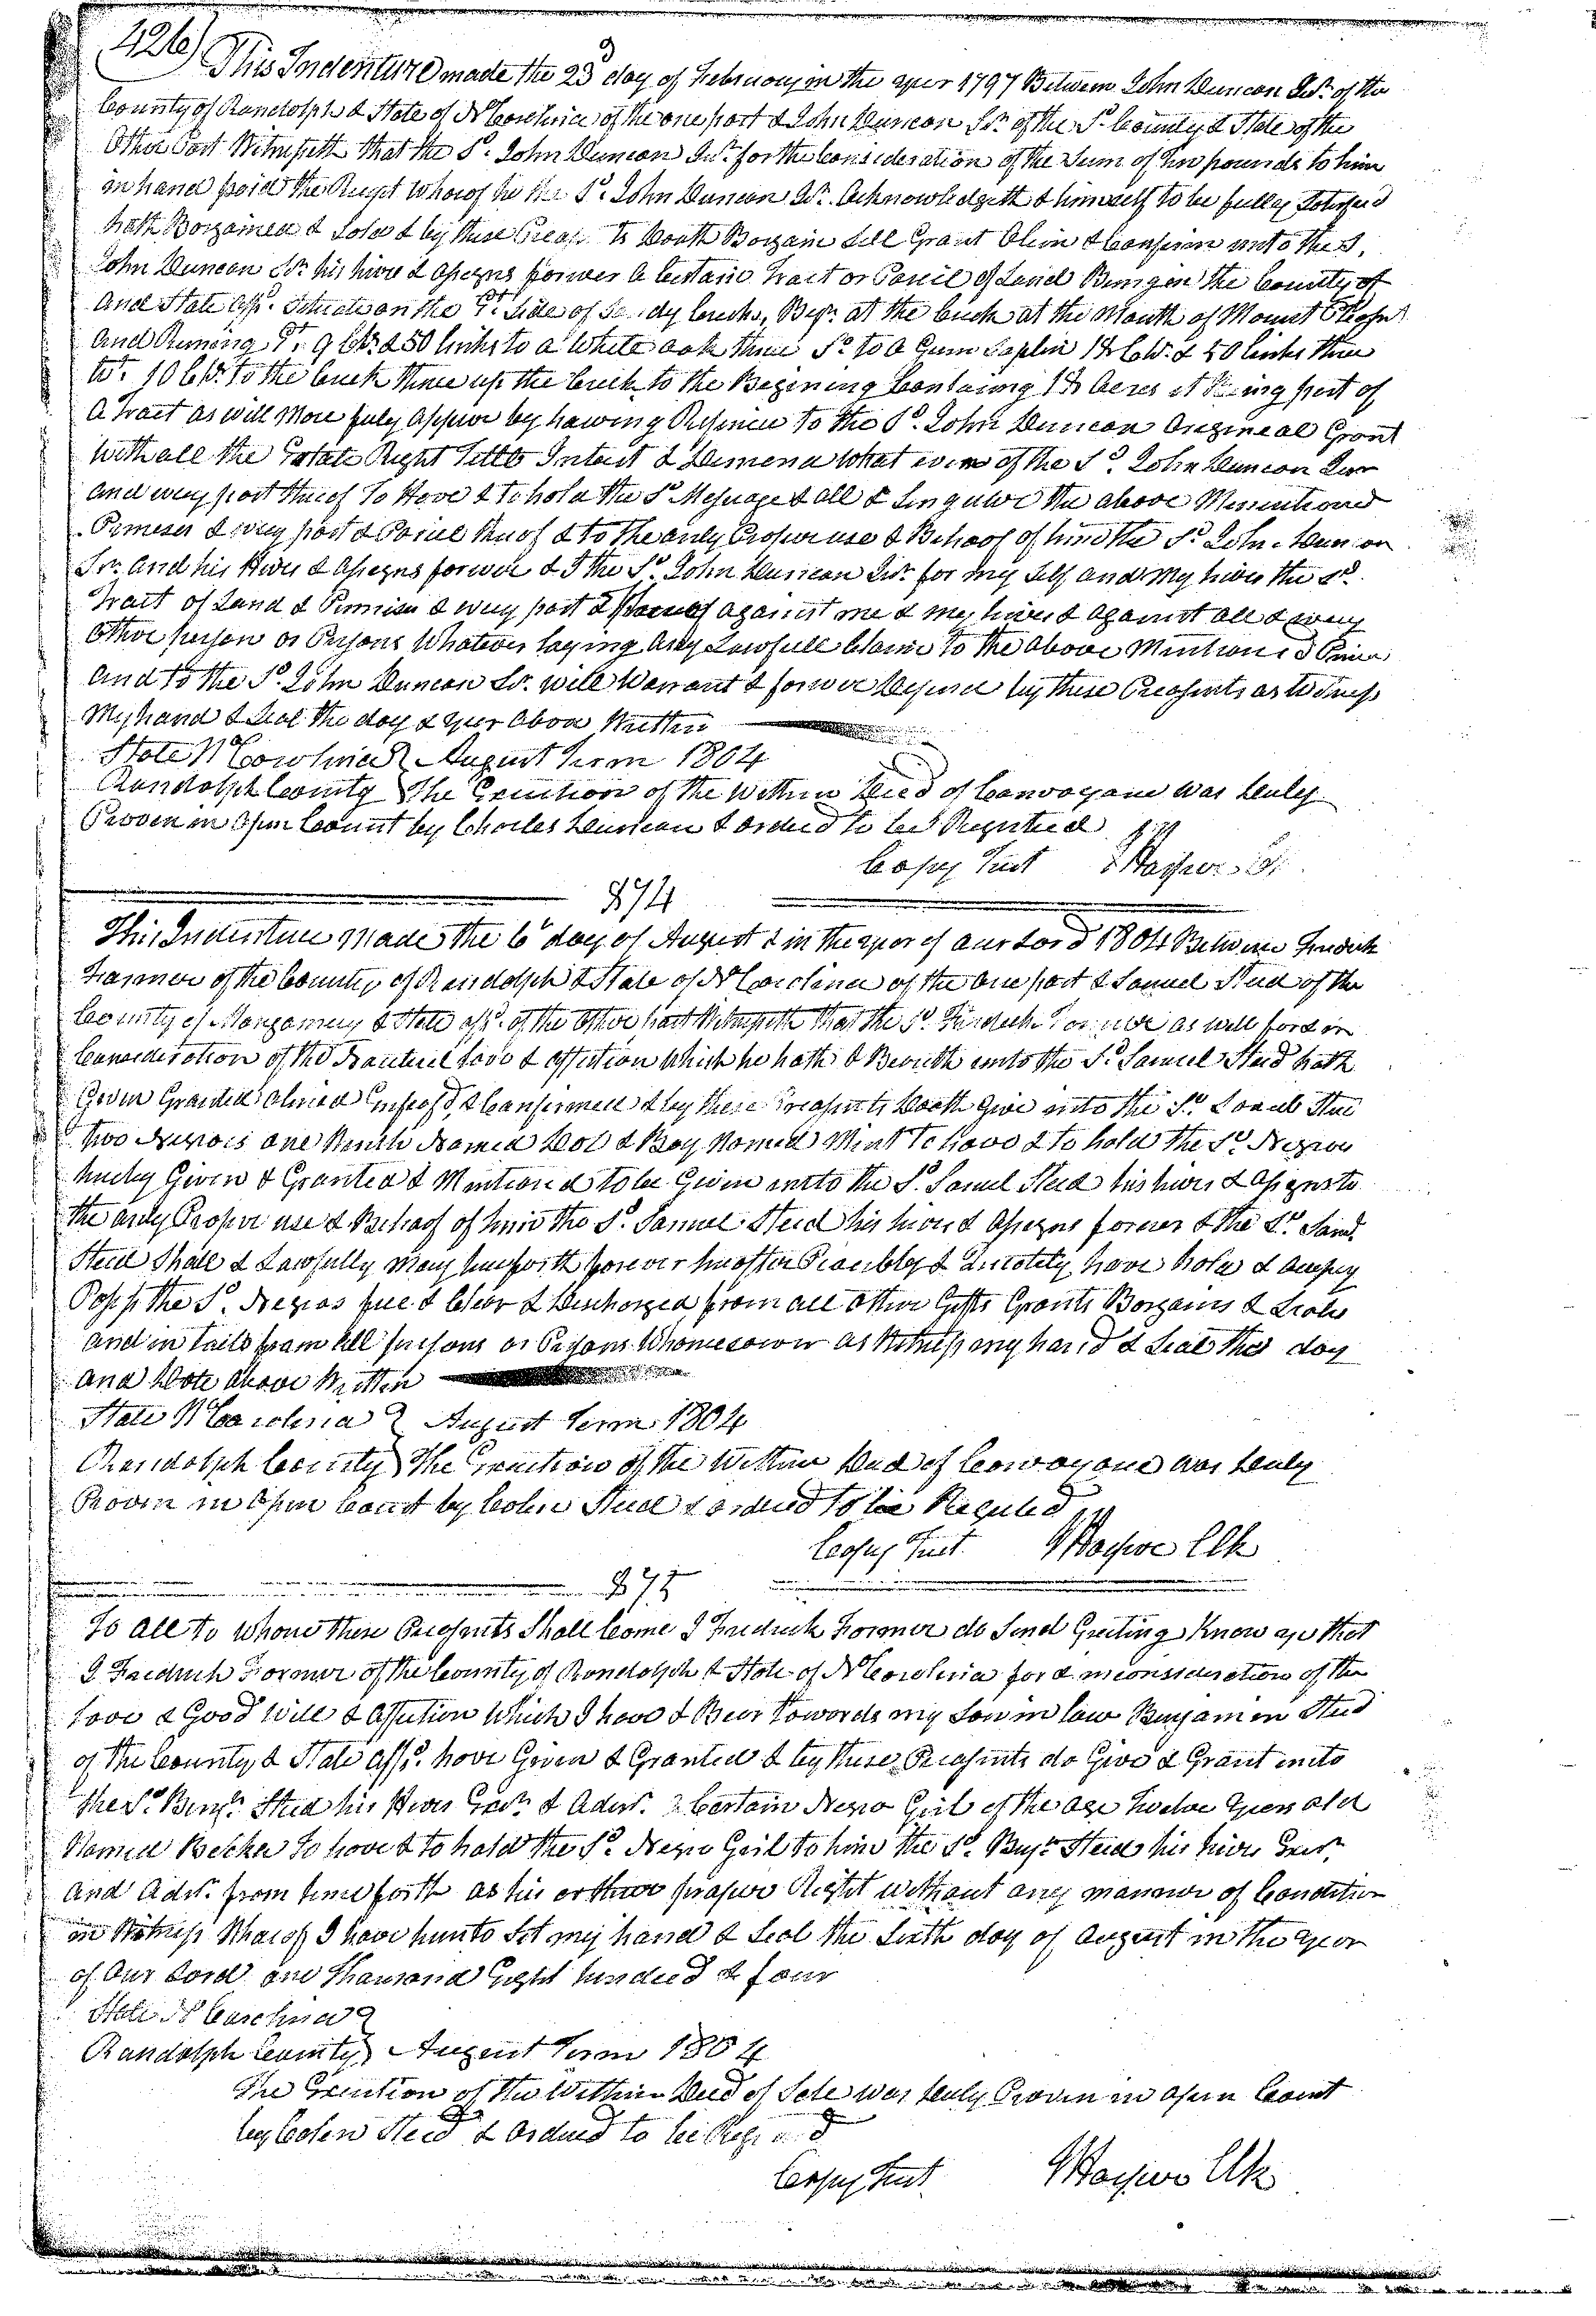 426)
This Indenture made the 23d day of February in the yeer 1797 Between John Duncan Jur. of the
County of Randolph & State of N Carolina of the one part & John Duncan Sr. of the Sd. County & State of the
Other Part Witnesseth that the Sd. John Duncan Jur. for the Consideration of the Sum of Ten pounds to him
in hand paid the Recpt whereof he the Sd. John Duncan Jr. Acknowledgeth & himself to be fully
hath Bargained & Sold & by these to Doath Bargain Sell Grant Alien & Confirm unto the Sd.
John Duncan Sr. his hires & Assegns forever a Certain Tract or Parcil of Land Being in the County of
And State afsd. Situate on the Et. Side of Sandy Creek, Begn. at the Creek at the Mouth of Mount
and Runing Et. 9 Chs. & 50 links to a White oak thence So. to a Gum Saplin 18 Chs. & 50 links thence
Wt. 10 Chs. to the Creek thence up the Creek to the Begining Containing 18 Acres it Being part of
A Tract as will More fuly Appear by haveing Refrence to the Sd. John Duncan Oregineal Grant
With all the Estate Right Title Intrest & Demend What ever of the Sd. John Duncan Juer
and every part thereof To Have & to hold the Sd. Messuage & all & Singular the above Menentioned
Premeses & every part & Parcel thereof & to the only Proper use & Behoof of him the Sd. John Duncan
Sr. And his Hires & Assegns forever & I the Sd. John Duncan Jur. for my Self and My hires the Sd.
Tract of Land & Premises & every part & thereof against me & my hires & against all & every
other person or Persons Whatever laying any Lawfull Claim to the above Mentioned
and to the Sd. John Duncan Sr. will Warrant & forever Defend by these Presents as Witness
My hand & Seal the day & yeer Above Written
State N Carolina August Term 1804
Randolph County The Execution of the Within Deed of Convayane was Deuly
Proven in Open Court by Charles Duncan & ordered to be Registered
Copy Test J Harper Clk
874
This Indenture Made the 6 day of August & in the year of our Lord 1804 Between Fredrick
Farmer of the County of Randolph & State of N Carolina of the One part & Samuel Steed of the
County of Mongomery & State afsd. of the Other part Witnesseth that the Sd. Fredrick Farmer as well for & in
Consideration of the Nauteral love & affection which he hath & Beareth unto the Sd. Samuel Steed hath
Given Granted Aliened & Confirmed & by these Preasents Doath Give unto the Sd. Samuel Steed
two Negrois one Named & Boy Named Mint To have & to hold the Sd. Negrois
hereby Given & Granted & Mentioned to be Given unto the Sd. Samuel Steed his hires & Assigns to
the only Proper use & Behoof of him the Sd. Samuel Steed his hires & Assegns forever & the Sd. Saml.
Steed Shall & Lawfully May henceforth forever hereafter Peaceably & Quietely have hold & Enjoy
Possess the Sd. Negros free & Clear & Descharged from all other Gifts Grants Bargains & Seales
and in tails from All persons or Persons Whomesoever as Witness my hand & Seal the day
and Date above Written
State N Carolina August Term 1804
Randolph County The Execution of the Within Deed of Convayane was Deuly
Proven in Open Court by Colen Steed & ordered to be
Copy Test J Harper Clk
875
To All to Whome these Preasents Shall Come I Fredrick Farmer do Send Greeting Know ye that
I Fredrick Farmer of the County of Randolph & State of N Carolina for & in consideration of the
love & Good Will & Affection Which I have & Bear towards my Son in law Benjamin Steed
of the County & State afsd. have Given & Granted & by these Preasents do Give & Grant unto
the Sd. Benjn. Steed his Hires Exrs. & Adms. a Certain Negro Girl of the age Twelve yeers old
Named Becka To have & to hold the Sd. Negro Girl to him the Sd. Bejn. Steed his hires Exrs.
and Adms. from henceforth as his or their proper Right without any manner of Condition
in Witness Whareof I have hereunto Set my hand & Seal the Sixth day of August in the year
of Our Lord one Thousand Eight hundred & four
State N Carolina
Randolph County August Term 1804
The Execution of the Within Deed of Sale was Deuly Proven in open Court
by Colen Steed & Ordered to be
Copy Test J Harper Clk